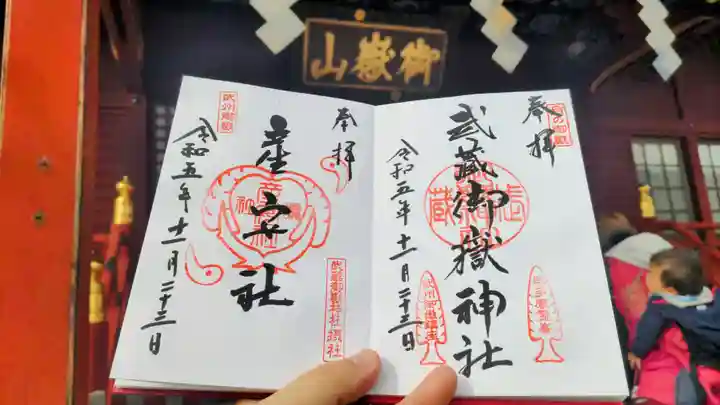 山嶽御
奉拝
武蔵御嶽神社
令和五年十一月二十三日
奉拝
産安社
令和五年十一月二十三日
武州御嶽
武蔵御嶽神社摂社